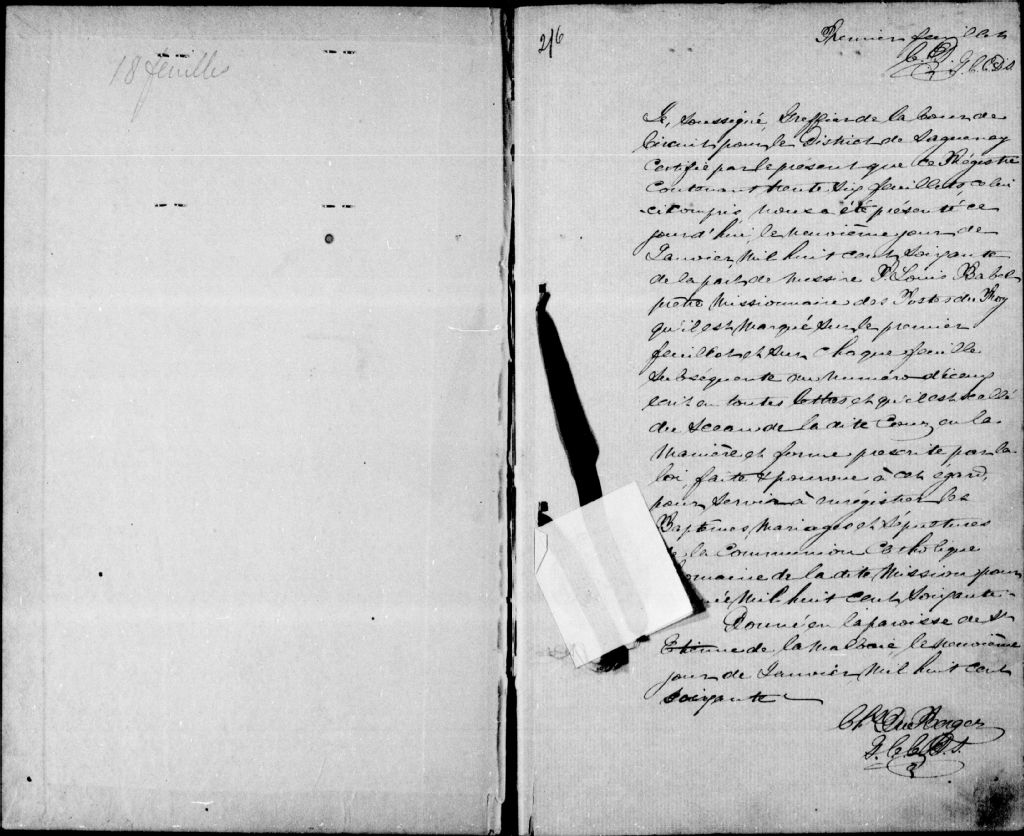 18 feuilles
216
Premier feuillet
Je, soussigné, Greffier de la Cour de
Circuit pour le District de Saguenay
Certifie par le présent que ce Régistre
Contenant trente six feuillets, celui
-ci compris, nous a été présenté ce
jourd'hui, le neuvième jour de
Janvier Mil huit cent soixante
de la part de Messire Ls. Louis Babel
prêtre Missionnaire des Postes du Roy
qu'il est Marqué sur le premier
feuillet et sur chaque feuille
subséquente au numéro d'iceux
écrit en toutes lettres et qu'il est scellé
du sceau de la dite Cour, en la
Manière et forme prescrite par la
loi, faite & pourvue à cet égard,
pour servir à enrégistrer les
Baptêmes Mariages et Sépultures
de la Communion Catholique
Romaine de la dite Mission pour
Mil huit cent Soixante -
Donné en la paroisse de St
Etienne de la Malbaie le neuvième
jour de Janvier Mil huit cent
Soixante -
Chs Du Berger